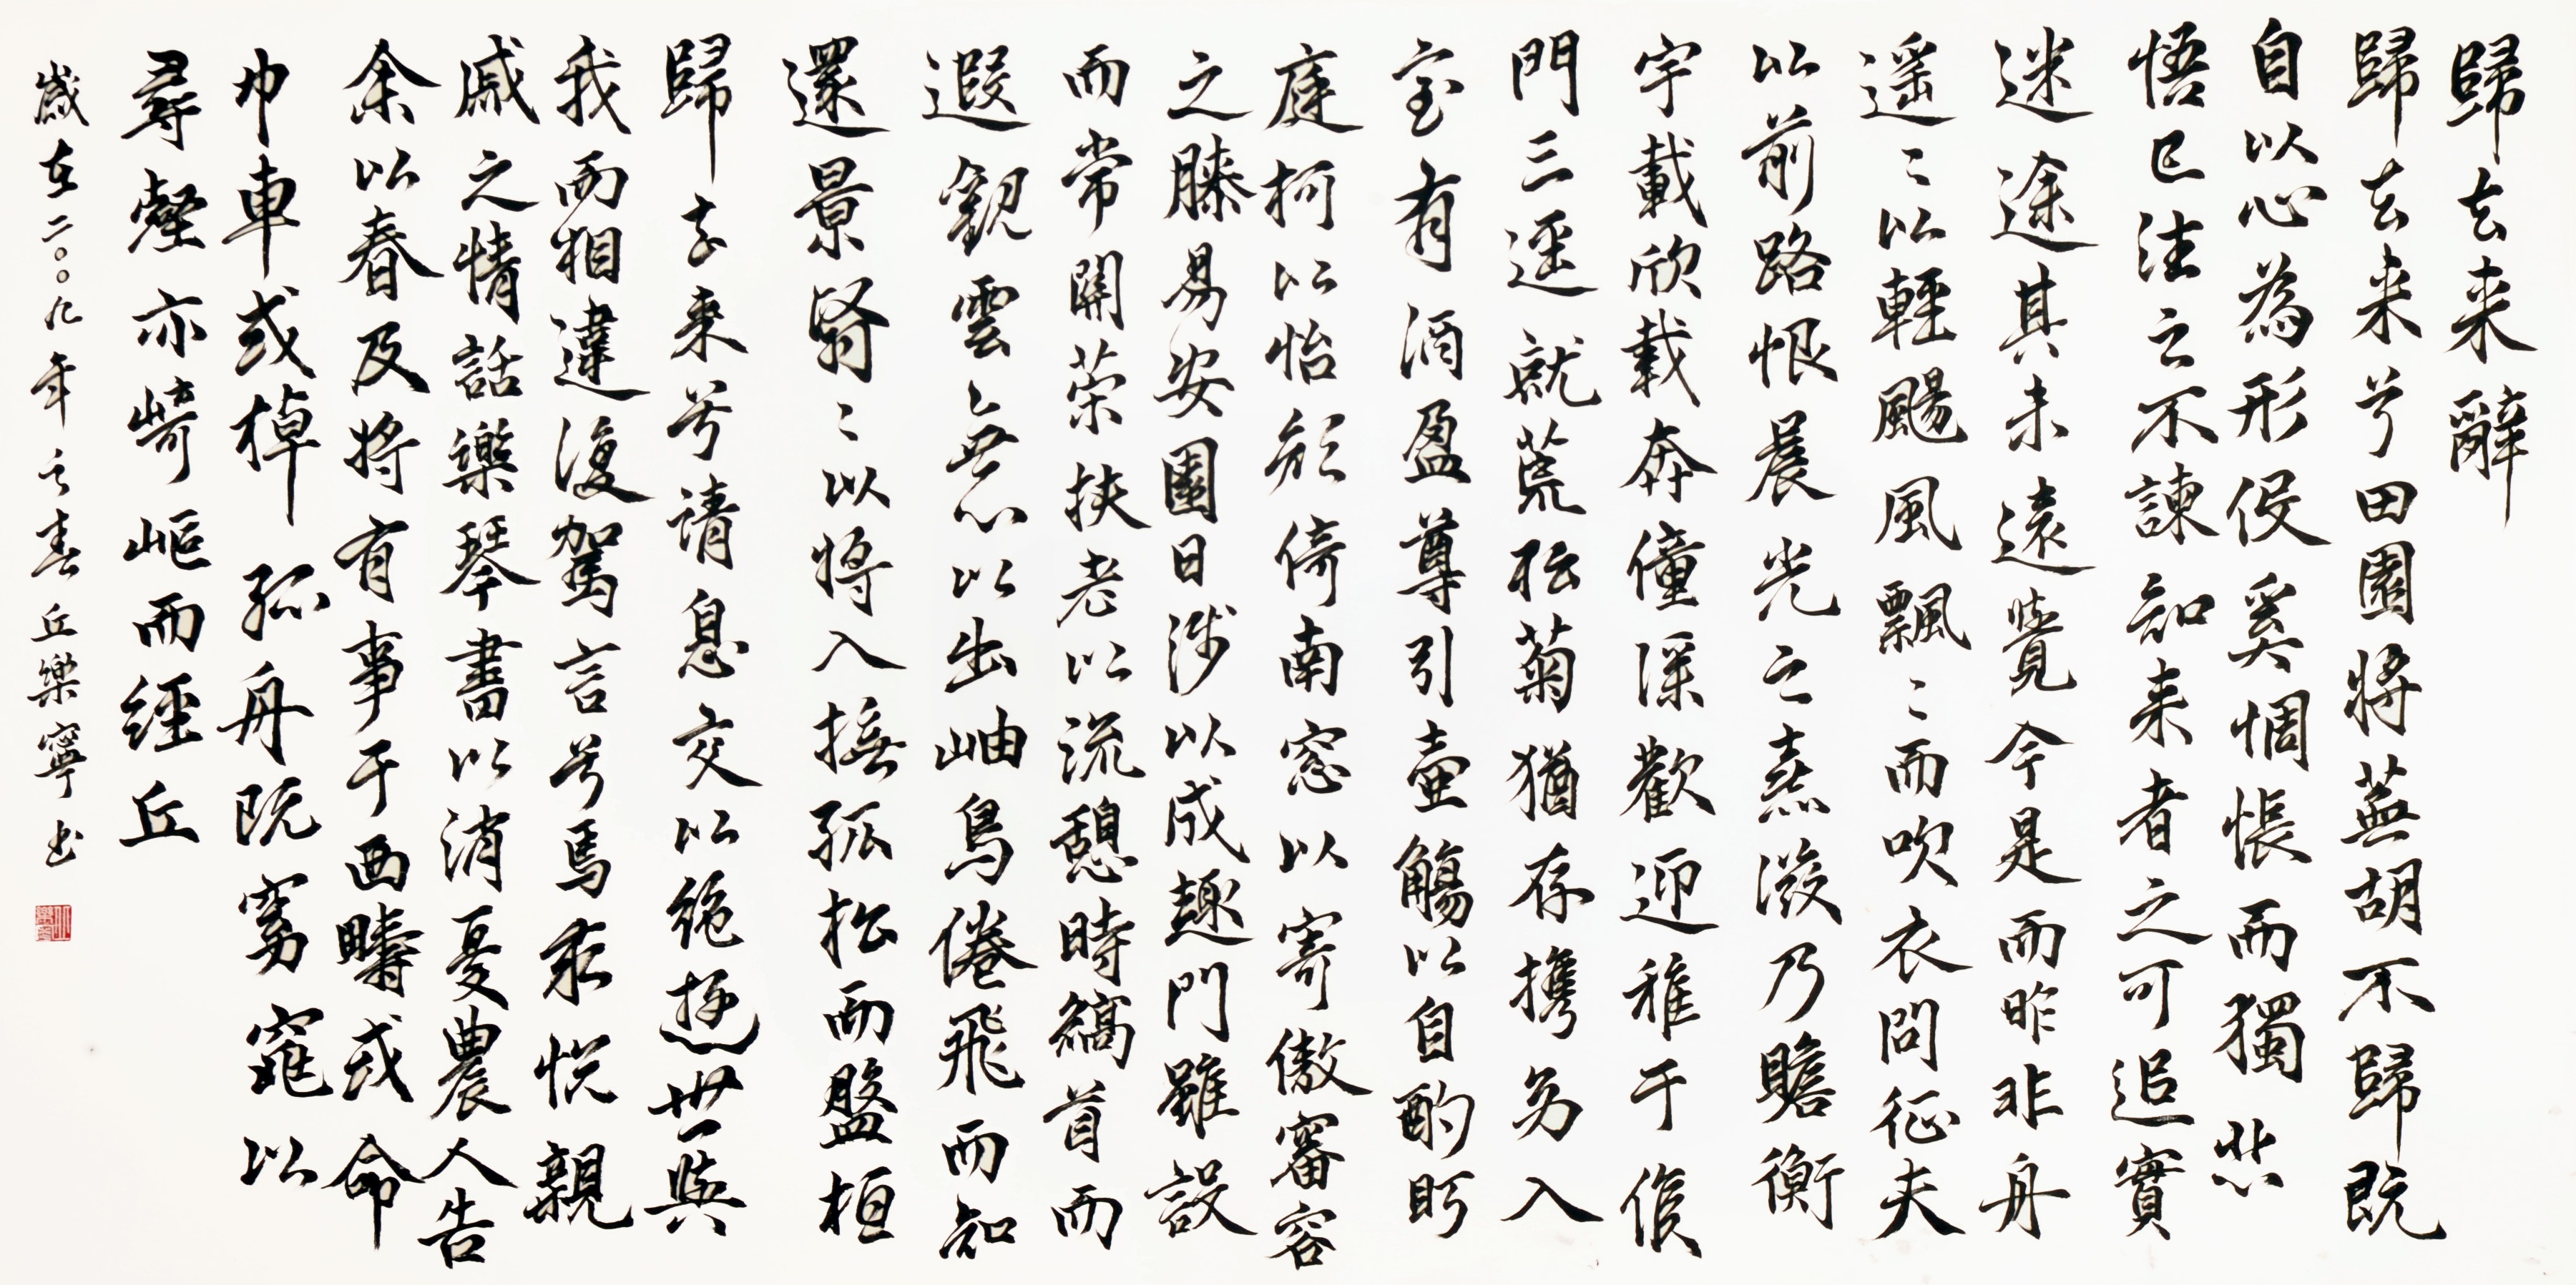 歸去来辭
歸去来兮田園將蕪胡不歸既
自以心為形役奚惆悵而獨悲
悟已往之不諫知来者之可追實
迷途其未遠覺今是而昨非舟
遥〻以輕颺風飄〻而吹衣問征夫
以前路恨晨光之熹微乃瞻衡
宇載欣載奔僮僕歡迎稚于候
門三逕就荒松菊猶存携幼入
室有酒盈尊引壺觴以自酌眄
庭柯以怡顔倚南窓以寄傲審容
之膝易安園日涉以成趣門雖設
而常關策扶老以流憩時矯首而
遐觀雲無心以出岫鳥倦飛而知
還景翳〻以將入撫孤松而盤桓
歸去来兮請息交以絶遊世與
我而相違復駕言兮焉求悦親
戚之情話樂琴書以消憂農人告
余以春及將有事于西疇或命
巾車或棹孤舟既窈窕以
尋壑亦崎嶇而經丘
歲在二〇〇九年之春丘樂寧书